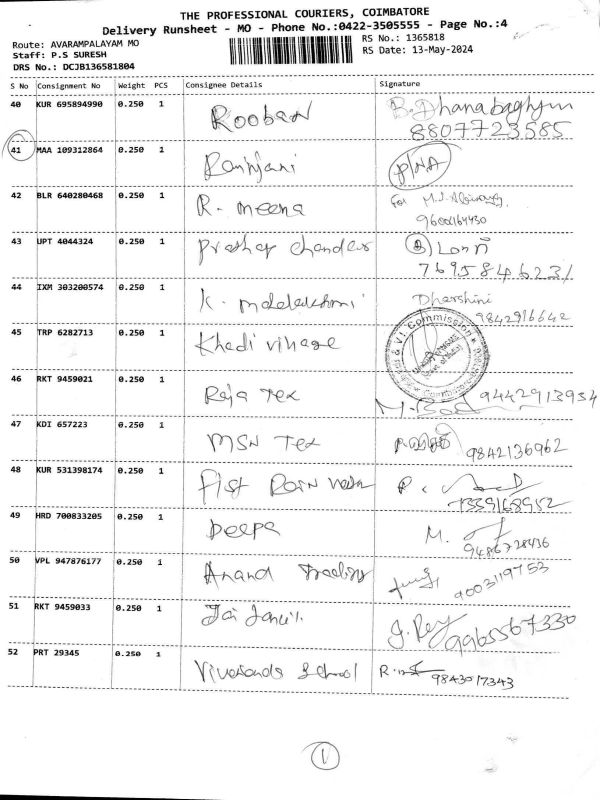 THE PROFESSIONAL COURIERS, COIMBATORE
Delivery Runsheet - MO - Phone No.:0422-3505555 - Page No.:4
Route: AVARAMPALAYAM MO
RS No.: 1365818
Staff: P.S SURESH
RS Date: 13-May-2024
DRS No.: DCJB136581804
S No Consignment No Weight PCS Consignee Details Signature
40 KUR 695894990 0.250 1 Rooban B. Dhanabaghyam
8807723585
41 MAA 109312864 0.250 1 Ranjani P/NA
42 BLR 640280468 0.250 1 R. meena For
9600164430
43 UPT 4044324 0.250 1 chander
7695846231
44 IXM 303200574 0.250 1 K. Dharshini
9842916642
45 TRP 6282713 0.250 1 Khadi village
& V.I. Commission
46 RKT 9459021 0.250 1 Raja Tex 9442913954
47 KDI 657223 0.250 1 MSN Tex 9842136962
48 KUR 531398174 0.250 1 Fist Rain R.
7339168952
49 HRD 700833205 0.250 1 Deepa M.
9486728436
50 VPL 947876177 0.250 1 Anand 9003119753
51 RKT 9459033 0.250 1 Jai 9965567330
52 PRT 29345 0.250 1 School R. 9843017343
1